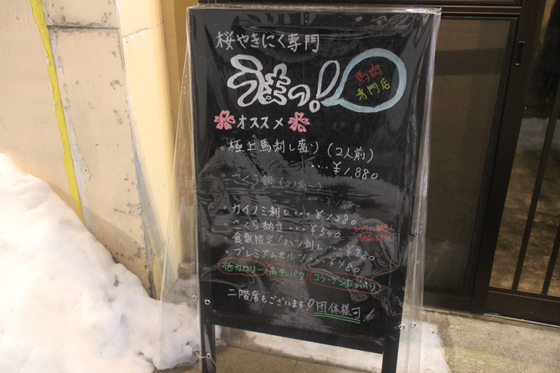 桜やきにく専門
うまっ!
馬肉
専門店
オススメ
極上馬刺し盛り(2人前)
・・・¥1,880
さくら鍋(2人前〜)
カイノミ刺し・・・¥1,280
さくら納豆・・・¥540
食数限定!ハツ刺し・・¥780
プレミアムモルツ・・・¥480
低カロリー 高タンパク コラーゲンたっぷり
二階席もございます!団体様可